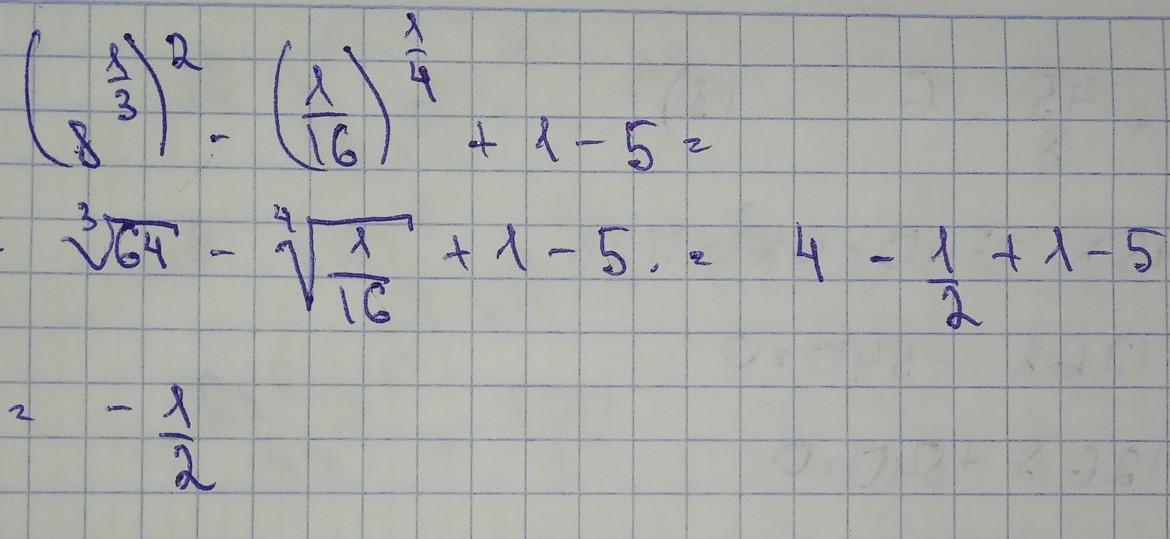 (8^{\frac{1}{3}})^2 - (\frac{1}{16})^{\frac{1}{4}} + 1 - 5 =
\sqrt[3]{64} - \sqrt[4]{\frac{1}{16}} + 1 - 5 . = 4 - \frac{1}{2} + 1 - 5
= - \frac{1}{2}